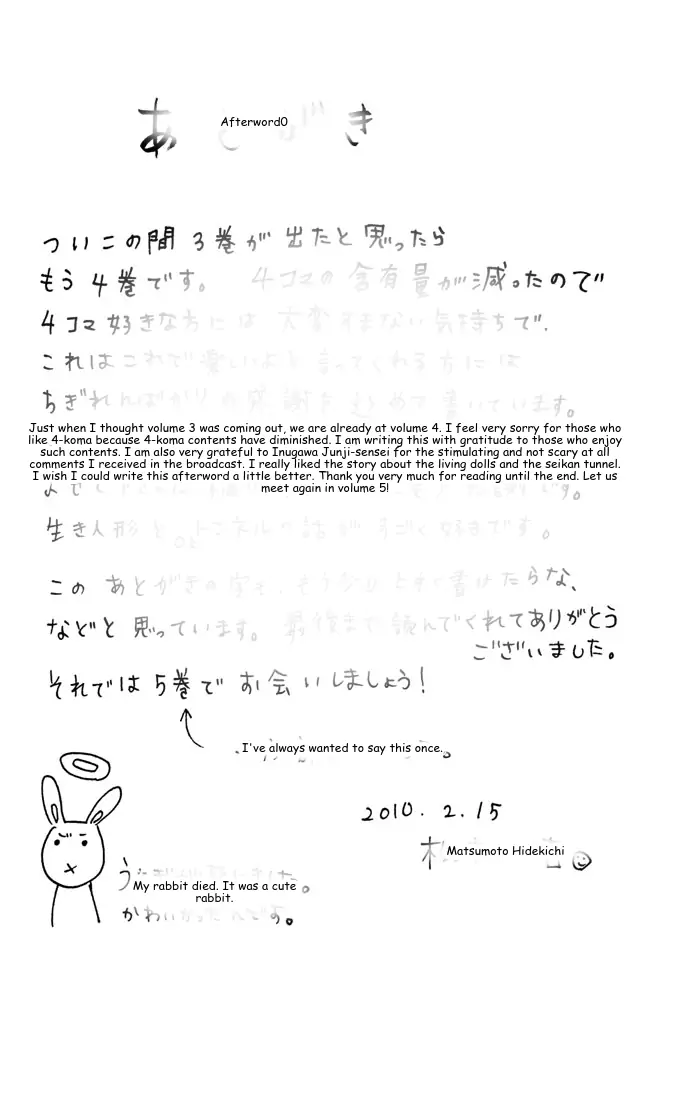 あとがき
Afterword0
ついこの間 3巻が 出たと思ったら
もう 4巻です。 4コマの 含有量が減ったので
4コマ好きな方には 大変すまない気持ちで、
これはこれで楽しいよと言ってくれる方には
ちぎれんばかりの感謝を込めて書いています。
Just when I thought volume 3 was coming out, we are already at volume 4. I feel very sorry for those who
like 4-koma because 4-koma contents have diminished. I am writing this with gratitude to those who enjoy
such contents. I am also very grateful to Inugawa Junji-sensei for the stimulating and not scary at all
comments I received in the broadcast. I really liked the story about the living dolls and the seikan tunnel.
I wish I could write this afterword a little better. Thank you very much for reading until the end. Let us
meet again in volume 5!
生き人形と トンネルの話が すごく 好きです。
この あとがきの字も、もう少し 上手く書けたらな、
などと 思っています。 最後まで 読んでくれてありがとう
ございました。
それでは 5巻で お会いしましょう!
I've always wanted to say this once.
2010. 2. 15
Matsumoto Hidekichi
My rabbit died. It was a cute
rabbit.
かわいかったんです。